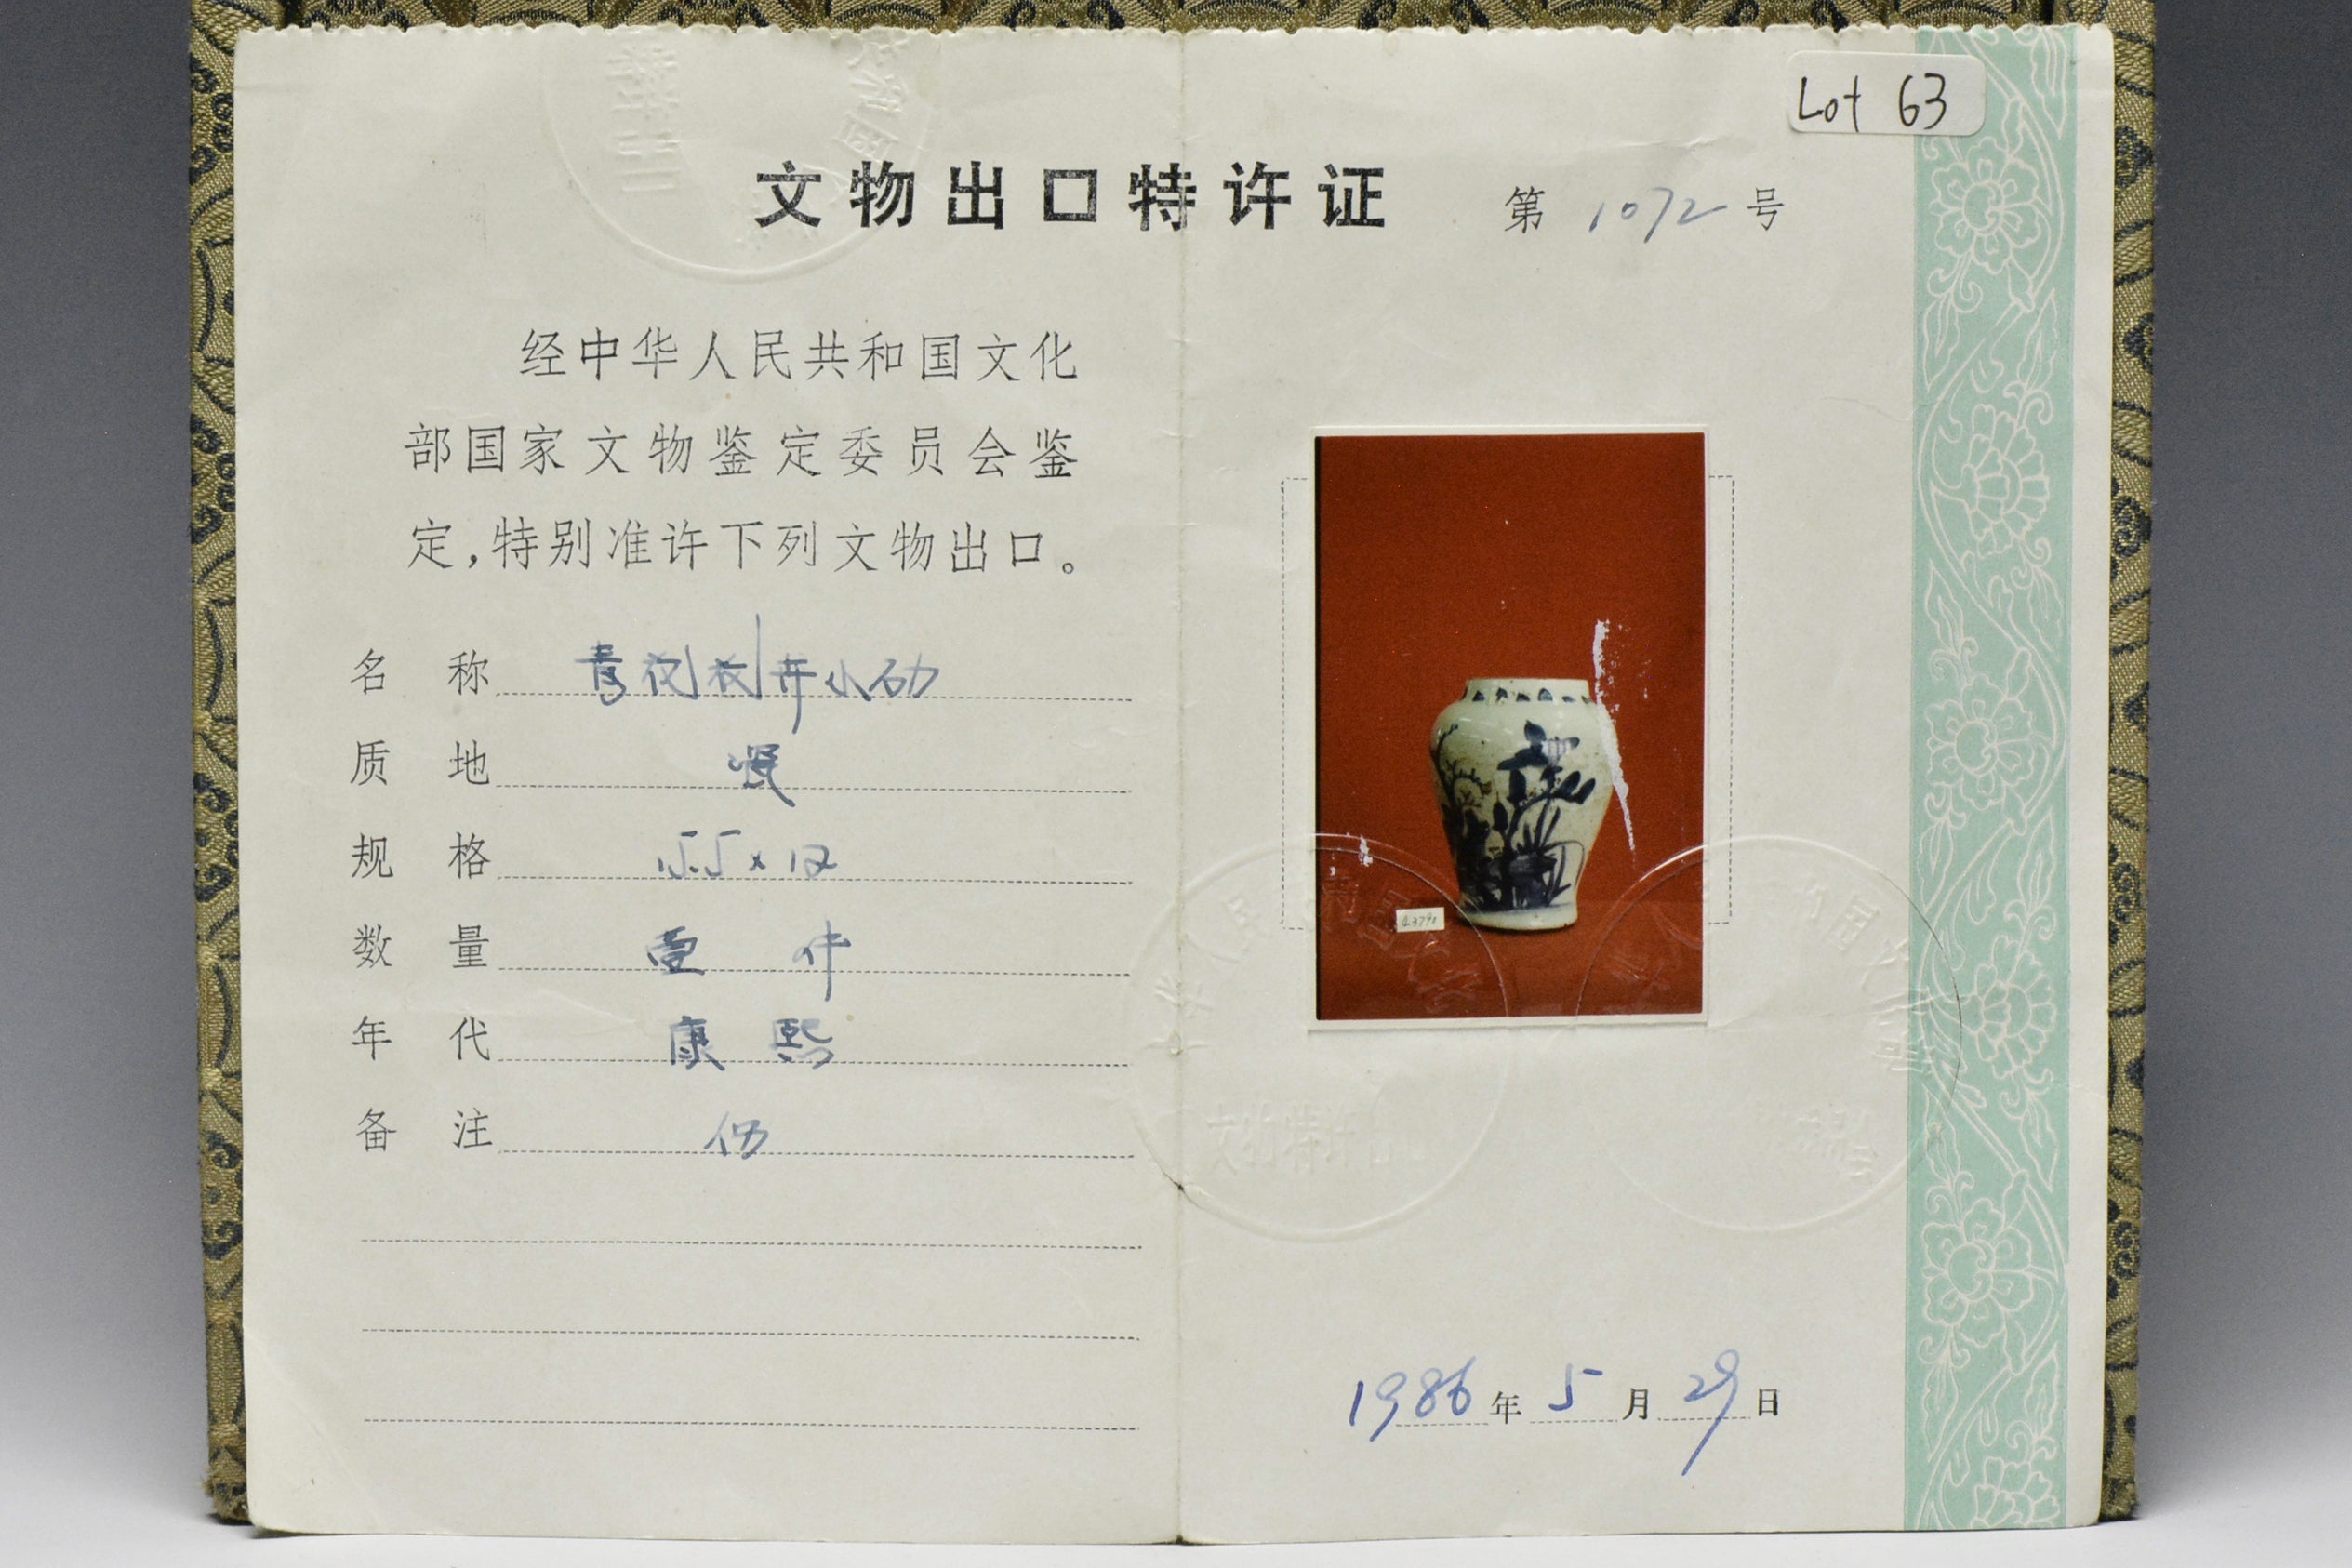 Lot 63
文物出口特许证 第 1072 号
经中华人民共和国文化
部国家文物鉴定委员会鉴
定,特别准许下列文物出口。
名 称 青花花卉小
质 地 瓷
规 格 15.5 x 12
数 量 壹 件
年 代 康 熙
备 注 仿
文物特许出
1986 年 5 月 29 日